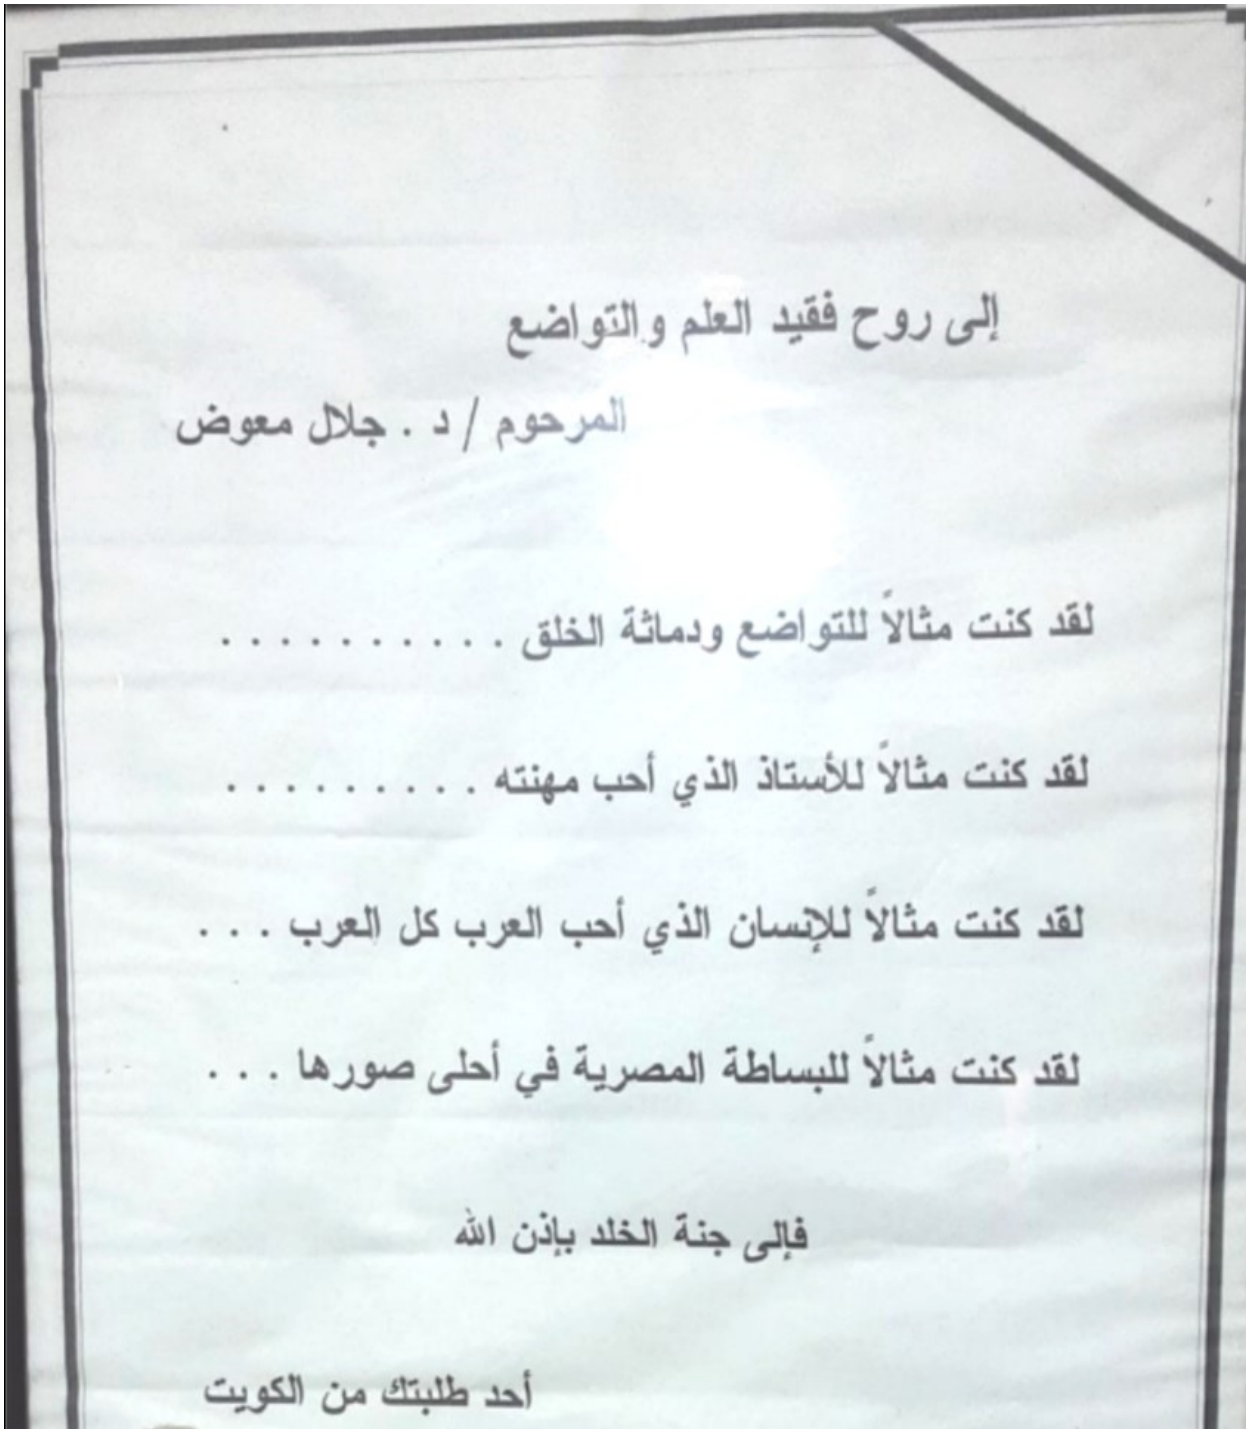 إلى روح فقيد العلم والتواضع
المرحوم / د . جلال معوض
لقد كنت مثالاً للتواضع ودماثة الخلق . . . . . . . . . . .
لقد كنت مثالاً للأستاذ الذي أحب مهنته . . . . . . . . . .
لقد كنت مثالاً للإنسان الذي أحب العرب كل العرب . . . .
لقد كنت مثالاً للبساطة المصرية في أحلى صورها . . . .
فإلى جنة الخلد بإذن الله
أحد طلبتك من الكويت